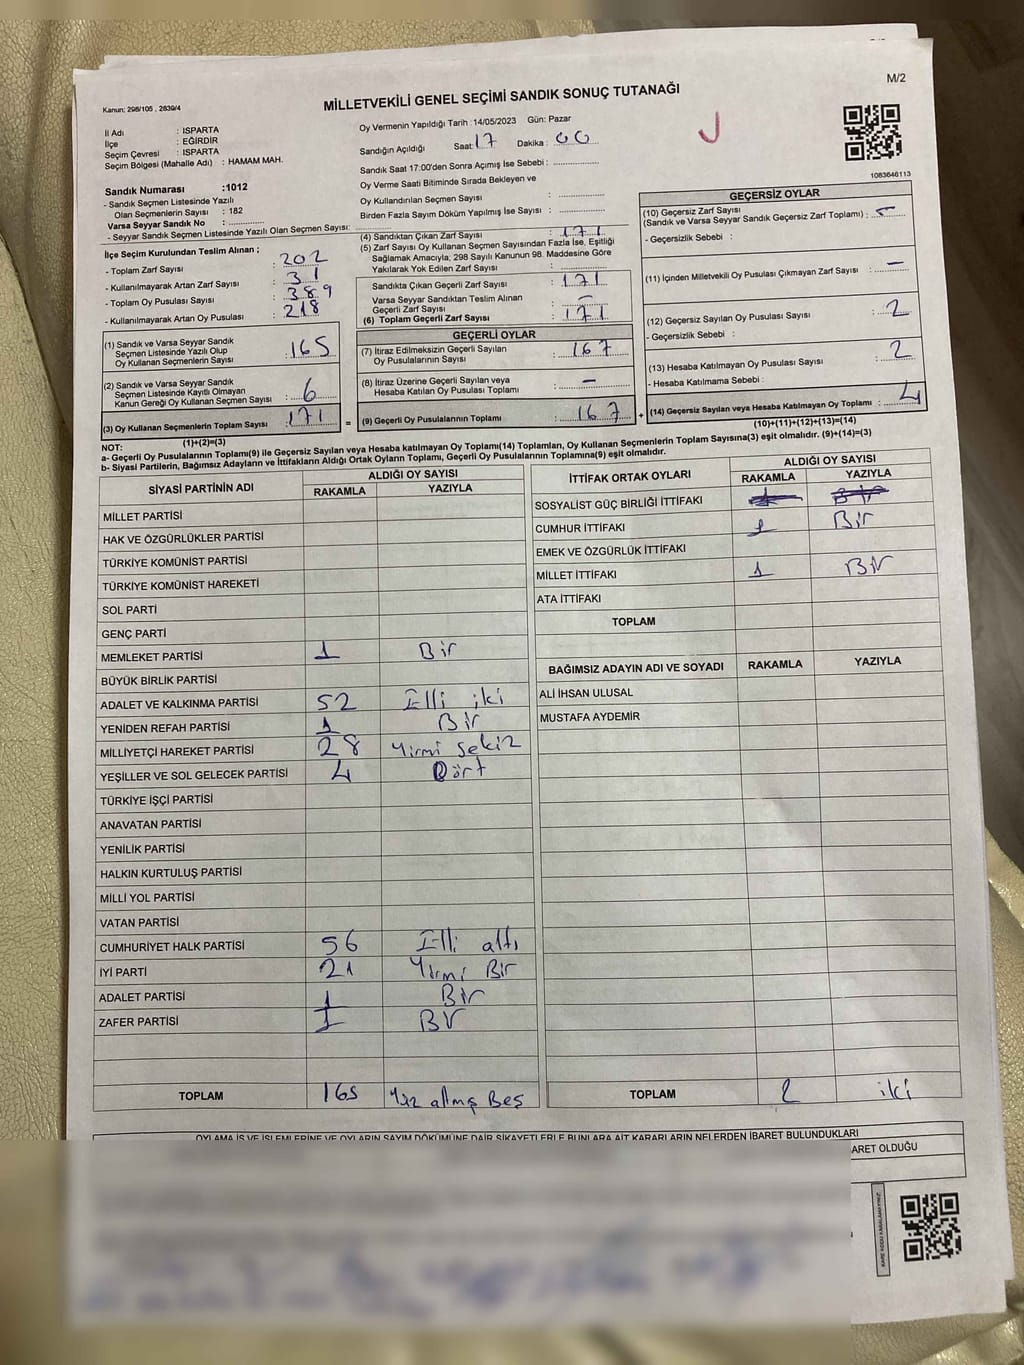 M/2
Kanun: 298/105 , 2839/4
MİLLETVEKİLİ GENEL SEÇİMİ SANDIK SONUÇ TUTANAĞI
İl Adı : ISPARTA
İlçe : EĞİRDİR
Seçim Çevresi : ISPARTA
Seçim Bölgesi (Mahalle Adı) : HAMAM MAH.
Sandık Numarası :1012
- Sandık Seçmen Listesinde Yazılı
Olan Seçmenlerin Sayısı : 182
Varsa Seyyar Sandık No : ..............
- Seyyar Sandık Seçmen Listesinde Yazılı Olan Seçmen Sayısı: ..............
Oy Vermenin Yapıldığı Tarih :14/05/2023 Gün: Pazar
Sandığın Açıldığı Saat: 17 Dakika : 00
Sandık Saat 17:00'den Sonra Açımış İse Sebebi : ..............
Oy Verme Saati Bitiminde Sırada Bekleyen ve
Oy Kullandırılan Seçmen Sayısı : ..............
Birden Fazla Sayım Döküm Yapılmış İse Sayısı : ..............
1083646113
İlçe Seçim Kurulundan Teslim Alınan ;
- Toplam Zarf Sayısı : 202
- Kullanılmayarak Artan Zarf Sayısı : 31
- Toplam Oy Pusulası Sayısı : 389
- Kullanılmayarak Artan Oy Pusulası : 218
(1) Sandık ve Varsa Seyyar Sandık
Seçmen Listesinde Yazılı Olup
Oy Kullanan Seçmenlerin Sayısı : 165
(2) Sandık ve Varsa Seyyar Sandık
Seçmen Listesinde Kayıtlı Olmayan
Kanun Gereği Oy Kullanan Seçmen Sayısı : 6
(3) Oy Kullanan Seçmenlerin Toplam Sayısı : 171
(1)+(2)=(3)
(4) Sandıktan Çıkan Zarf Sayısı : 171
(5) Zarf Sayısı Oy Kullanan Seçmen Sayısından Fazla İse, Eşitliği
Sağlamak Amacıyla, 298 Sayılı Kanunun 98. Maddesine Göre
Yakılarak Yok Edilen Zarf Sayısı : ..............
Sandıkta Çıkan Geçerli Zarf Sayısı : 171
Varsa Seyyar Sandıktan Teslim Alınan
Geçerli Zarf Sayısı : –
(6) Toplam Geçerli Zarf Sayısı : 171
GEÇERLİ OYLAR
(7) İtiraz Edilmeksizin Geçerli Sayılan
Oy Pusulalarının Sayısı : 167
(8) İtiraz Üzerine Geçerli Sayılan veya
Hesaba Katılan Oy Pusulası Toplamı : –
= (9) Geçerli Oy Pusulalarının Toplamı : 167 +
GEÇERSİZ OYLAR
(10) Geçersiz Zarf Sayısı
(Sandık ve Varsa Seyyar Sandık Geçersiz Zarf Toplamı) : –
- Geçersizlik Sebebi :
(11) İçinden Milletvekili Oy Pusulası Çıkmayan Zarf Sayısı : –
(12) Geçersiz Sayılan Oy Pusulası Sayısı : 2
- Geçersizlik Sebebi :
(13) Hesaba Katılmayan Oy Pusulası Sayısı : 2
- Hesaba Katılmama Sebebi :
(14) Geçersiz Sayılan veya Hesaba Katılmayan Oy Toplamı : 4
(10)+(11)+(12)+(13)=(14)
NOT:
a- Geçerli Oy Pusulalarının Toplamı(9) ile Geçersiz Sayılan veya Hesaba katılmayan Oy Toplamı(14) Toplamları, Oy Kullanan Seçmenlerin Toplam Sayısına(3) eşit olmalıdır. (9)+(14)=(3)
b- Siyasi Partilerin, Bağımsız Adayların ve İttifakların Aldığı Ortak Oyların Toplamı, Geçerli Oy Pusulalarının Toplamına(9) eşit olmalıdır.
SİYASİ PARTİNİN ADI ALDIĞI OY SAYISI
RAKAMLA YAZIYLA
MİLLET PARTİSİ
HAK VE ÖZGÜRLÜKLER PARTİSİ
TÜRKİYE KOMÜNİST PARTİSİ
TÜRKİYE KOMÜNİST HAREKETİ
SOL PARTİ
GENÇ PARTİ
MEMLEKET PARTİSİ 1 Bir
BÜYÜK BİRLİK PARTİSİ
ADALET VE KALKINMA PARTİSİ 52 Elli iki
YENİDEN REFAH PARTİSİ 1 Bir
MİLLİYETÇİ HAREKET PARTİSİ 28 Yirmi sekiz
YEŞİLLER VE SOL GELECEK PARTİSİ 4 Dört
TÜRKİYE İŞÇİ PARTİSİ
ANAVATAN PARTİSİ
YENİLİK PARTİSİ
HALKIN KURTULUŞ PARTİSİ
MİLLİ YOL PARTİSİ
VATAN PARTİSİ
CUMHURİYET HALK PARTİSİ 56 Elli altı
İYİ PARTİ 21 Yirmi Bir
ADALET PARTİSİ 1 Bir
ZAFER PARTİSİ 1 Bir
TOPLAM 165 Yüz altmış Beş
İTTİFAK ORTAK OYLARI ALDIĞI OY SAYISI
RAKAMLA YAZIYLA
SOSYALİST GÜÇ BİRLİĞİ İTTİFAKI 1 Bir
CUMHUR İTTİFAKI 1 Bir
EMEK VE ÖZGÜRLÜK İTTİFAKI
MİLLET İTTİFAKI 1 Bir
ATA İTTİFAKI
TOPLAM
BAĞIMSIZ ADAYIN ADI VE SOYADI RAKAMLA YAZIYLA
ALİ İHSAN ULUSAL
MUSTAFA AYDEMİR
TOPLAM 2 iki
OYLAMA İŞ VE İŞLEMLERİNE VE OYLARIN SAYIM DÖKÜMÜNE DAİR ŞİKAYETLERLE BUNLARA AİT KARARLARIN NELERDEN İBARET BULUNDUKLARI
ARET OLDUĞU